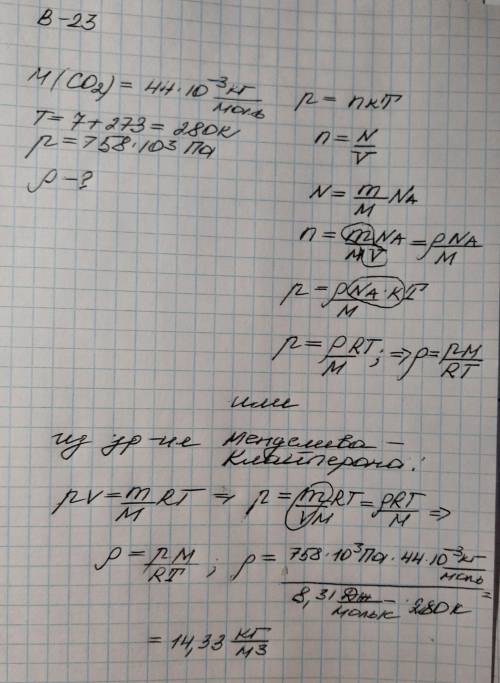 В-23
M(CO₂) = 44·10⁻³ кг/моль
T = 7 + 273 = 280К
p = 758·10³ Па
ρ - ?
p = nкT
n = N/V
N = m/M N_A
n = mN_A/MV = ρN_A/M
p = ρN_A·кT/M
p = ρRT/M; ⇒ ρ = pM/RT
или
из ур-ие Менделеева -
Клайперона:
pV = m/M RT ⇒ p = m/VM RT = ρRT/M ⇒
ρ = pM/RT; ρ = 758·10³Па·44·10⁻³ кг/моль / 8,31 Дж/моль·К · 280К =
= 14,33 кг/м³